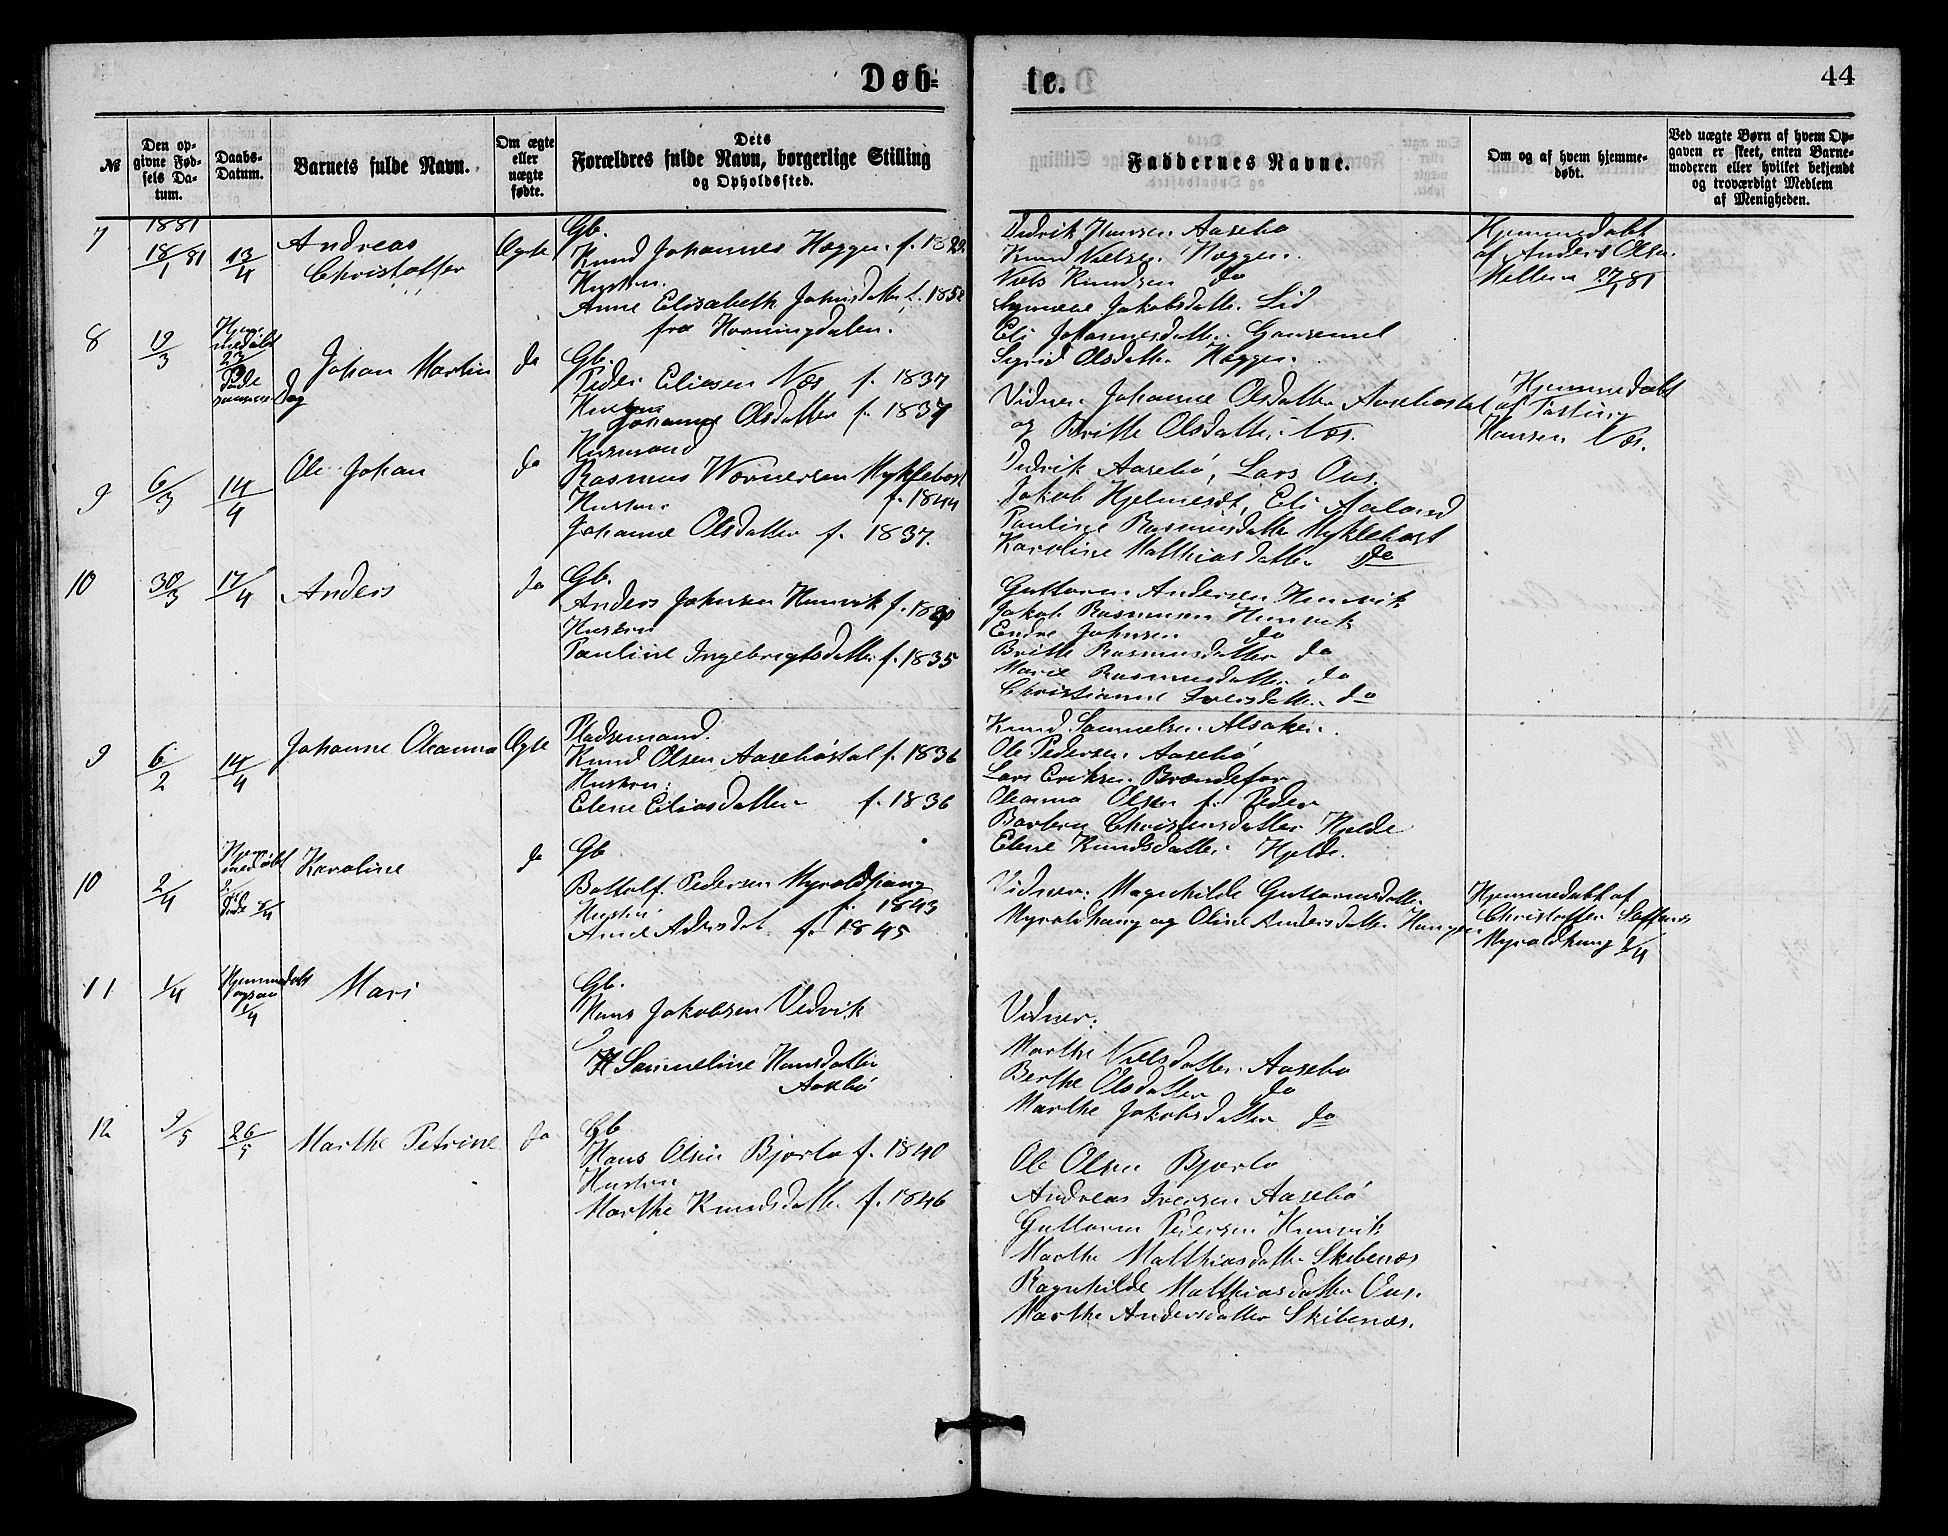 Døb-
te.
44
№
Den op-
givne Fød-
sels Da-
tum.
Daabs-
Datum.
Barnets fulde Navn.
Om ægte
eller
uægte
fødte.
Dets
Forældres fulde Navn, borgerlige Stilling
og Opholdsfted.
Faddernes Navne.
Om og af hvem hjemme-
døbt.
Ved uægte Børn af hvem Op-
gaven er skeet, enten Barne-
moderen eller hvilket bekjendt
og troværdigt Medlem
af Menigheden.
7
1881
18/1 81
13/4
Andreas
Christoffer
Ægte
Gb.
Knud Johannes Hoggen f.
Hustru.
Anne Elisabeth Johnsdatter f. 1852
fra Horningdalen.
Didrik Hansen Aasebø
Knud Nielsen Hoggen.
Niels Knudsen do
Jakobsdatter Lid
Eli Johannesdatter
Sigrid Olsdatter Hoggen.
Hjemmedøbt
af Anders Olsen
Mellem 27/1 81
8
19/3
Hjem-
medøbt
23/3
Døde
samme Dag
Johan Martin
do
Gb.
Peder Eliesen Næs f. 1837
Hustru
Johanne Olsdatter f. 1837
Vidner: Johanne Olsdatter Aasebøstøl
og Britte Olsdatter Næs.
Hjemmedøbt
af
Hansen Næs.
9
6/3
14/4
Ole Johan
do
Husmand
Rasmus Wernersen Myklebost
f. 1844
Hustru.
Johanne Olsdatter f. 1837.
Didrik Aasebø, Lars Ous.
Jakob Hjelmeset, Eli Aaland
Pauline Rasmusdatter Myklebost
Karoline Matthiasdatter do
10
30/3
17/4
Anders
do
Gb.
Anders Johnsen Hunvik f. 1830
Hustru
Pauline Ingebrigtsdatter f. 1835
Guttorm Andersen Hunvik
Jakob Rasmusen Hunvik
Endre Johnsen do
Britte Rasmusdatter do
Marie Rasmusdatter do
Christianne Iversdatter do
9
6/2
14/4
Johanne Oleanna
Ægte
Pladsemand.
Knud Olsen Aasebøstøl f. 1836
Hustru:
Elene Eliasdatter f. 1836
Knud Samuelsen Alsaker.
Ole Pedersen Aasebø
Lars Eriksen Brændefør
Oleanna Olsen f. Peder
Barbru Christensdatter Hjelde
Elene Knudsdatter Hjelde.
10
2/4
Hjem-
medøbt
2/4
Døde 2/4
Karoline
do
Gb
Bottolf Pedersen Myroldhaug
f. 1843
Hustru
Anne Adrsdat. f. 1845
Vidner: Magnhilde Guttormsdatter
Myroldhaug og Oline Andersdatter Haugen
Hjemmedøbt af
Christoffer
Myroldhaug 2/4
11
1/4
Hjemmedøbt
1/4
Mari
Gb.
Hans Jakobsen Vedvik
H Sameline Hansdatter
Aasebø
Vidner:
Marthe Nielsdatter Aasebø
Berthe Olsdatter do
Marthe Jakobsdatter do
12
9/5
26/5
Marthe Petrine
do
Gb
Hans Olsen Bjørlo f. 1840
Hustru
Marthe Knudsdatter f. 1846
Ole Olsen Bjørlo
Andreas Iversen Aasebø
Guttorm Pedersen Hunvik
Marthe Matthiasdatter Skibenes
Ragnhilde Matthiasdatter Ous.
Marthe Andersdatter Skibenæs.